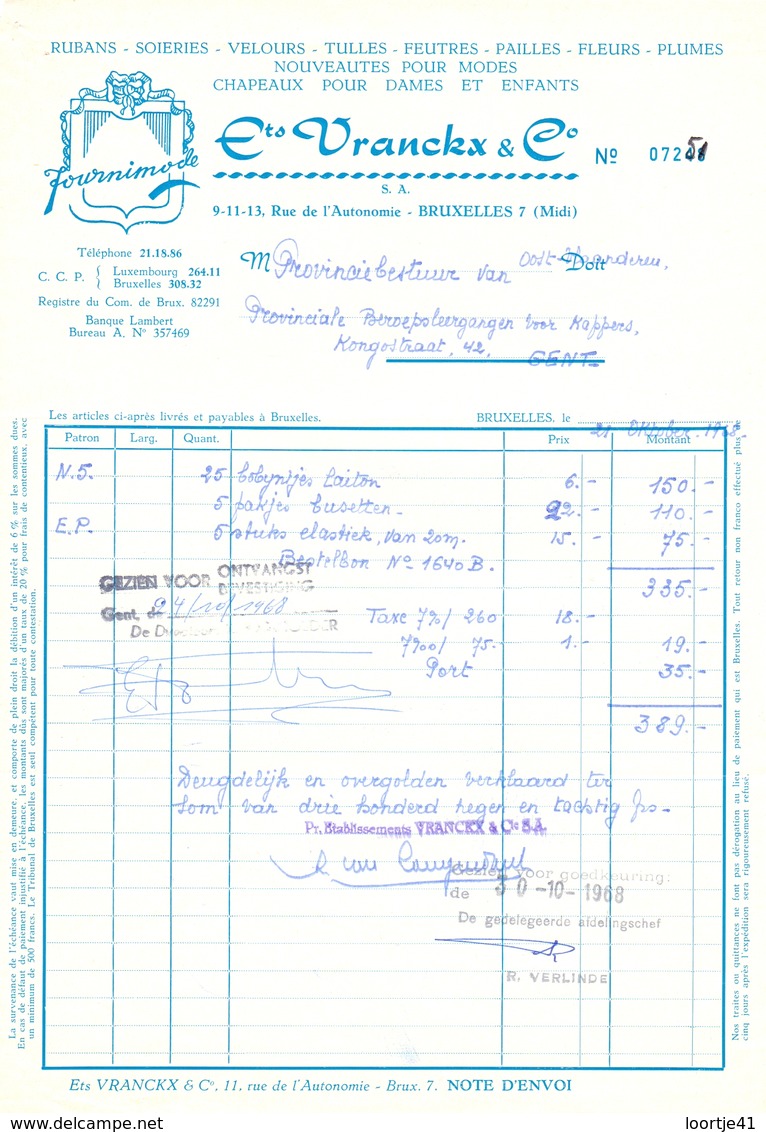 RUBANS - SOIERIES - VELOURS - TULLES - FEUTRES - PAILLES - FLEURS - PLUMES
NOUVEAUTES POUR MODES
CHAPEAUX POUR DAMES ET ENFANTS
fournimode
Ets Vranckx & Co
No 07251
S. A.
9-11-13, Rue de l'Autonomie - BRUXELLES 7 (Midi)
Téléphone 21.18.86
C. C. P. { Luxembourg 264.11
Bruxelles 308.32
Registre du Com. de Brux. 82291
Banque Lambert
Bureau A. No 357469
M Provinciebestuur van Oost-Vlaanderen, Doit
Provinciale Beroepsleergangen voor Kappers,
Kongostraat, 42, GENT.-
Les articles ci-après livrés et payables à Bruxelles.
BRUXELLES, le 21 Oktober 1968.
Patron Larg. Quant. Prix Montant
N. 5. 25 bobyntjes laiton 6.- 150.-
5 pakjes busetten.- 22.- 110.-
E.P. 5 stuks elastiek, van 20m. 15.- 75.-
Bestelbon No 1640 B.
335.-
GEZIEN VOOR ONTVANGST
BEVESTIGING
Gent, de 24/10/1968
Taxe 7%/ 260 18.-
7%00/ 75.- 1.- 19.-
Port 35.-
389.-
Deugdelijk en overgolden verklaard ter
som van drie honderd negen en tachtig frs-
Pr. Etablissements VRANCKX & Cie S.A.
Gezien voor goedkeuring:
de 30-10-1968
De gedelegeerde afdelingschef
R. VERLINDE
La survenance de l'échéance vaut mise en demeure, et comporte de plein droit la débition d'un intérêt de 6 % sur les sommes dues.
En cas de défaut de paiement injustifié à l'échéance, les montants dûs sont majorés d'un taux de 20 % pour frais de contentieux, avec
un minimum de 500 francs. Le Tribunal de Bruxelles est seul compétent pour toute contestation.
Nos traites ou quittances ne font pas dérogation au lieu de paiement qui est Bruxelles. Tout retour non franco effectué plus de
cinq jours après l'expédition sera rigoureusement refusé.
Ets VRANCKX & Co, 11, rue de l'Autonomie - Brux. 7. NOTE D'ENVOI
loortje41